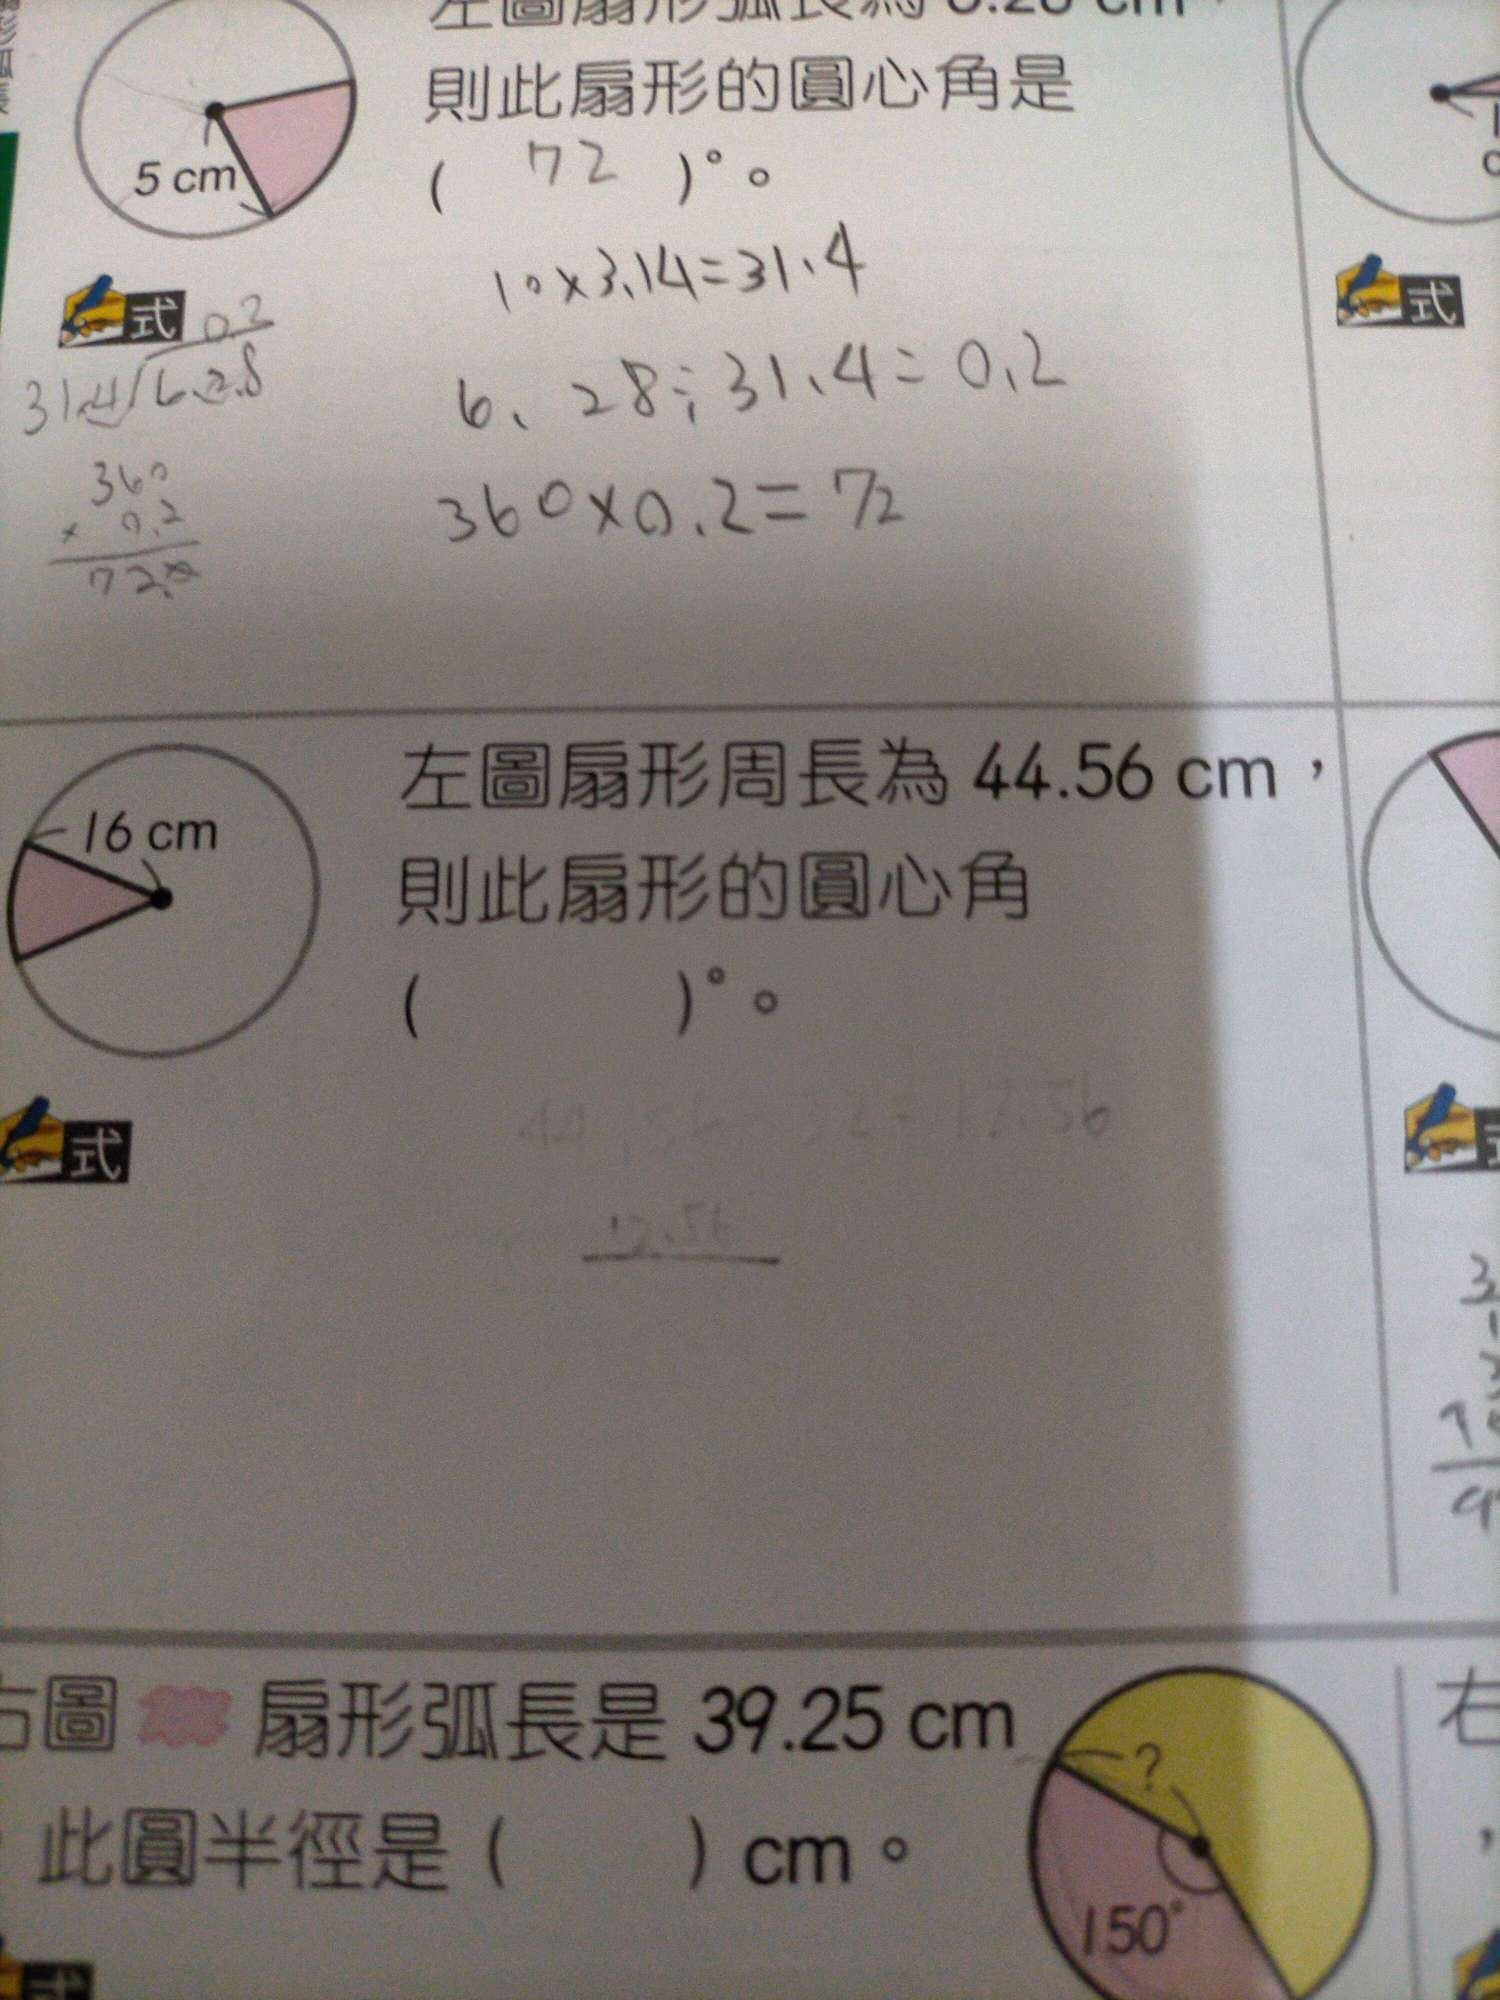 左圖扇形弧長為 6.28 cm,
則此扇形的圓心角是
( 72 )°。
5 cm
式
10×3.14=31.4
6.28÷31.4=0.2
360×0.2=72
0.2
31.4 6.2.8
360
× 0.2
72.0
式
左圖扇形周長為 44.56 cm,
則此扇形的圓心角
( )°。
16 cm
式
12.56
式
右圖 扇形弧長是 39.25 cm
此圓半徑是( )cm。
?
150°
式
右